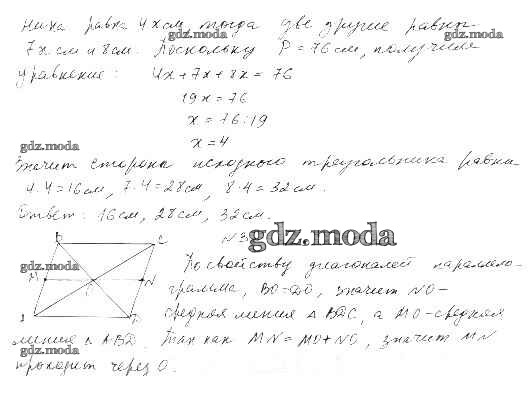 нина равна 4x см, тогда две другие равны
7x см и 8 см. Поскольку P = 76 см, получили
gdz.moda gdz.moda
уравнение: 4x + 7x + 8x = 76
19x = 76
x = 76 : 19
x = 4
gdz.moda
Значит стороны исходного треугольника равны
4·4=16см, 7·4=28см, 8·4=32см.
Ответ: 16см, 28см, 32см.
N3
gdz.moda
B C
gdz.moda
По свойству диагоналей параллело-
M N
грамма, BO=DO, значит NO-
средняя линия △ BDC, а MO-средняя
линия △ ABD. Так как MN = MO + NO, значит MN
gdz.moda
проходит через O.